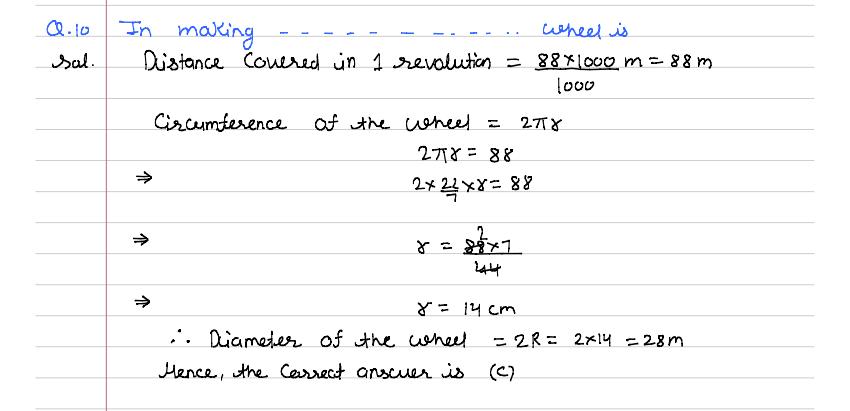 Q.10 In making - - - - - - - - - - .. wheel is
Sol. Distance Covered in 1 revolution = 88×1000/1000 m = 88 m
Circumference of the wheel = 2πr
2πr = 88
⇒ 2 × 22/7 × r = 88
⇒ r = 88×7/44 2
⇒ r = 14 cm
∴ Diameter of the wheel = 2R = 2×14 = 28m
Hence, the Correct answer is (C)